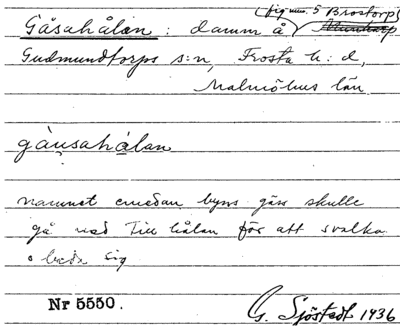 (fig. num. 5 Brostorp)
Gåsahålan : damm å Munktorp
Gudmundtorps s:n, Frosta h:d,
Malmöhus län.
gåụsahålan
namnet emedan byns gäss skulle
gå ned till hålan för att svalka
o bada sig
Nr 5550.
G. Sjöstedt 1936